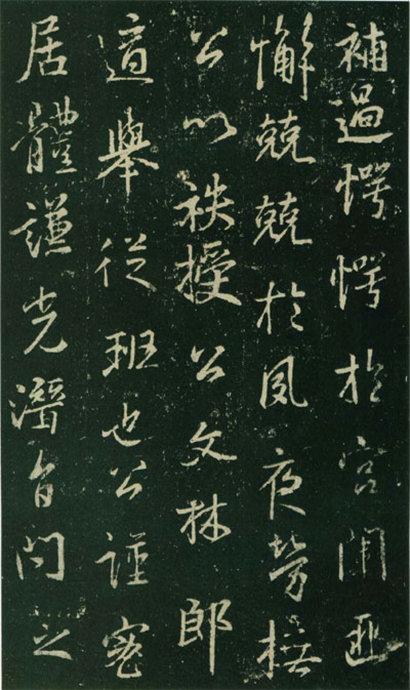 補過愕愕於宮闈匪
懈兢兢於夙夜勞撫
公以袟授公文林郎
適舉從班也公謹密
居體謙光潛旨問之